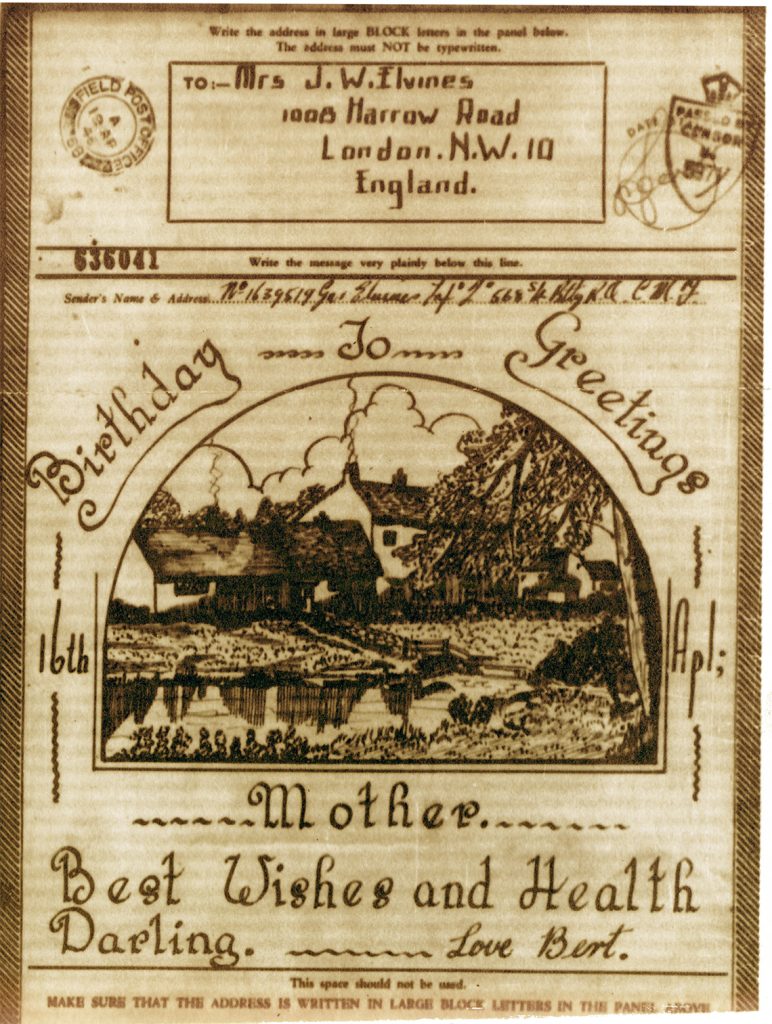 Write the address in large BLOCK letters in the panel below.
The address must NOT be typewritten.
TO:- Mrs J.W. Elvines
100B Harrow Road
London. N.W. 10
England.
FIELD POST OFFICE
A
19 AP
DATE
PASSED BY
CENSOR
636041
Write the message very plainly below this line.
Sender's Name & Address No 1639519 Gnr Elvines C.M.F.
Birthday Greetings
To
16th
Apl;
Mother.
Best Wishes and Health
Darling. Love Bert.
This space should not be used.
MAKE SURE THAT THE ADDRESS IS WRITTEN IN LARGE BLOCK LETTERS IN THE PANEL ABOVE